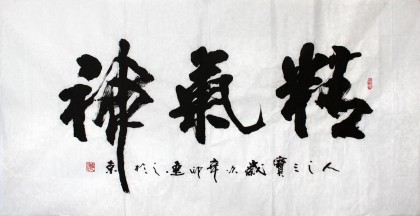 精氣神
人之三寶歲次辛卯夏之於京